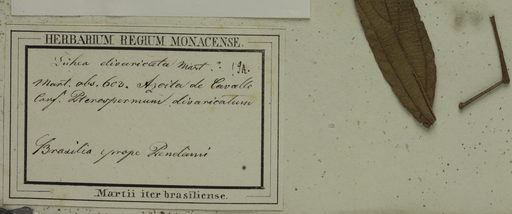 HERBARIUM REGIUM MONACENSE.
divaricata Mart.
Mart. obs. 602. Azoita de Cavallo
Conf. Pterospermum divaricatum
Brasilia prope
Martii iter brasiliense.